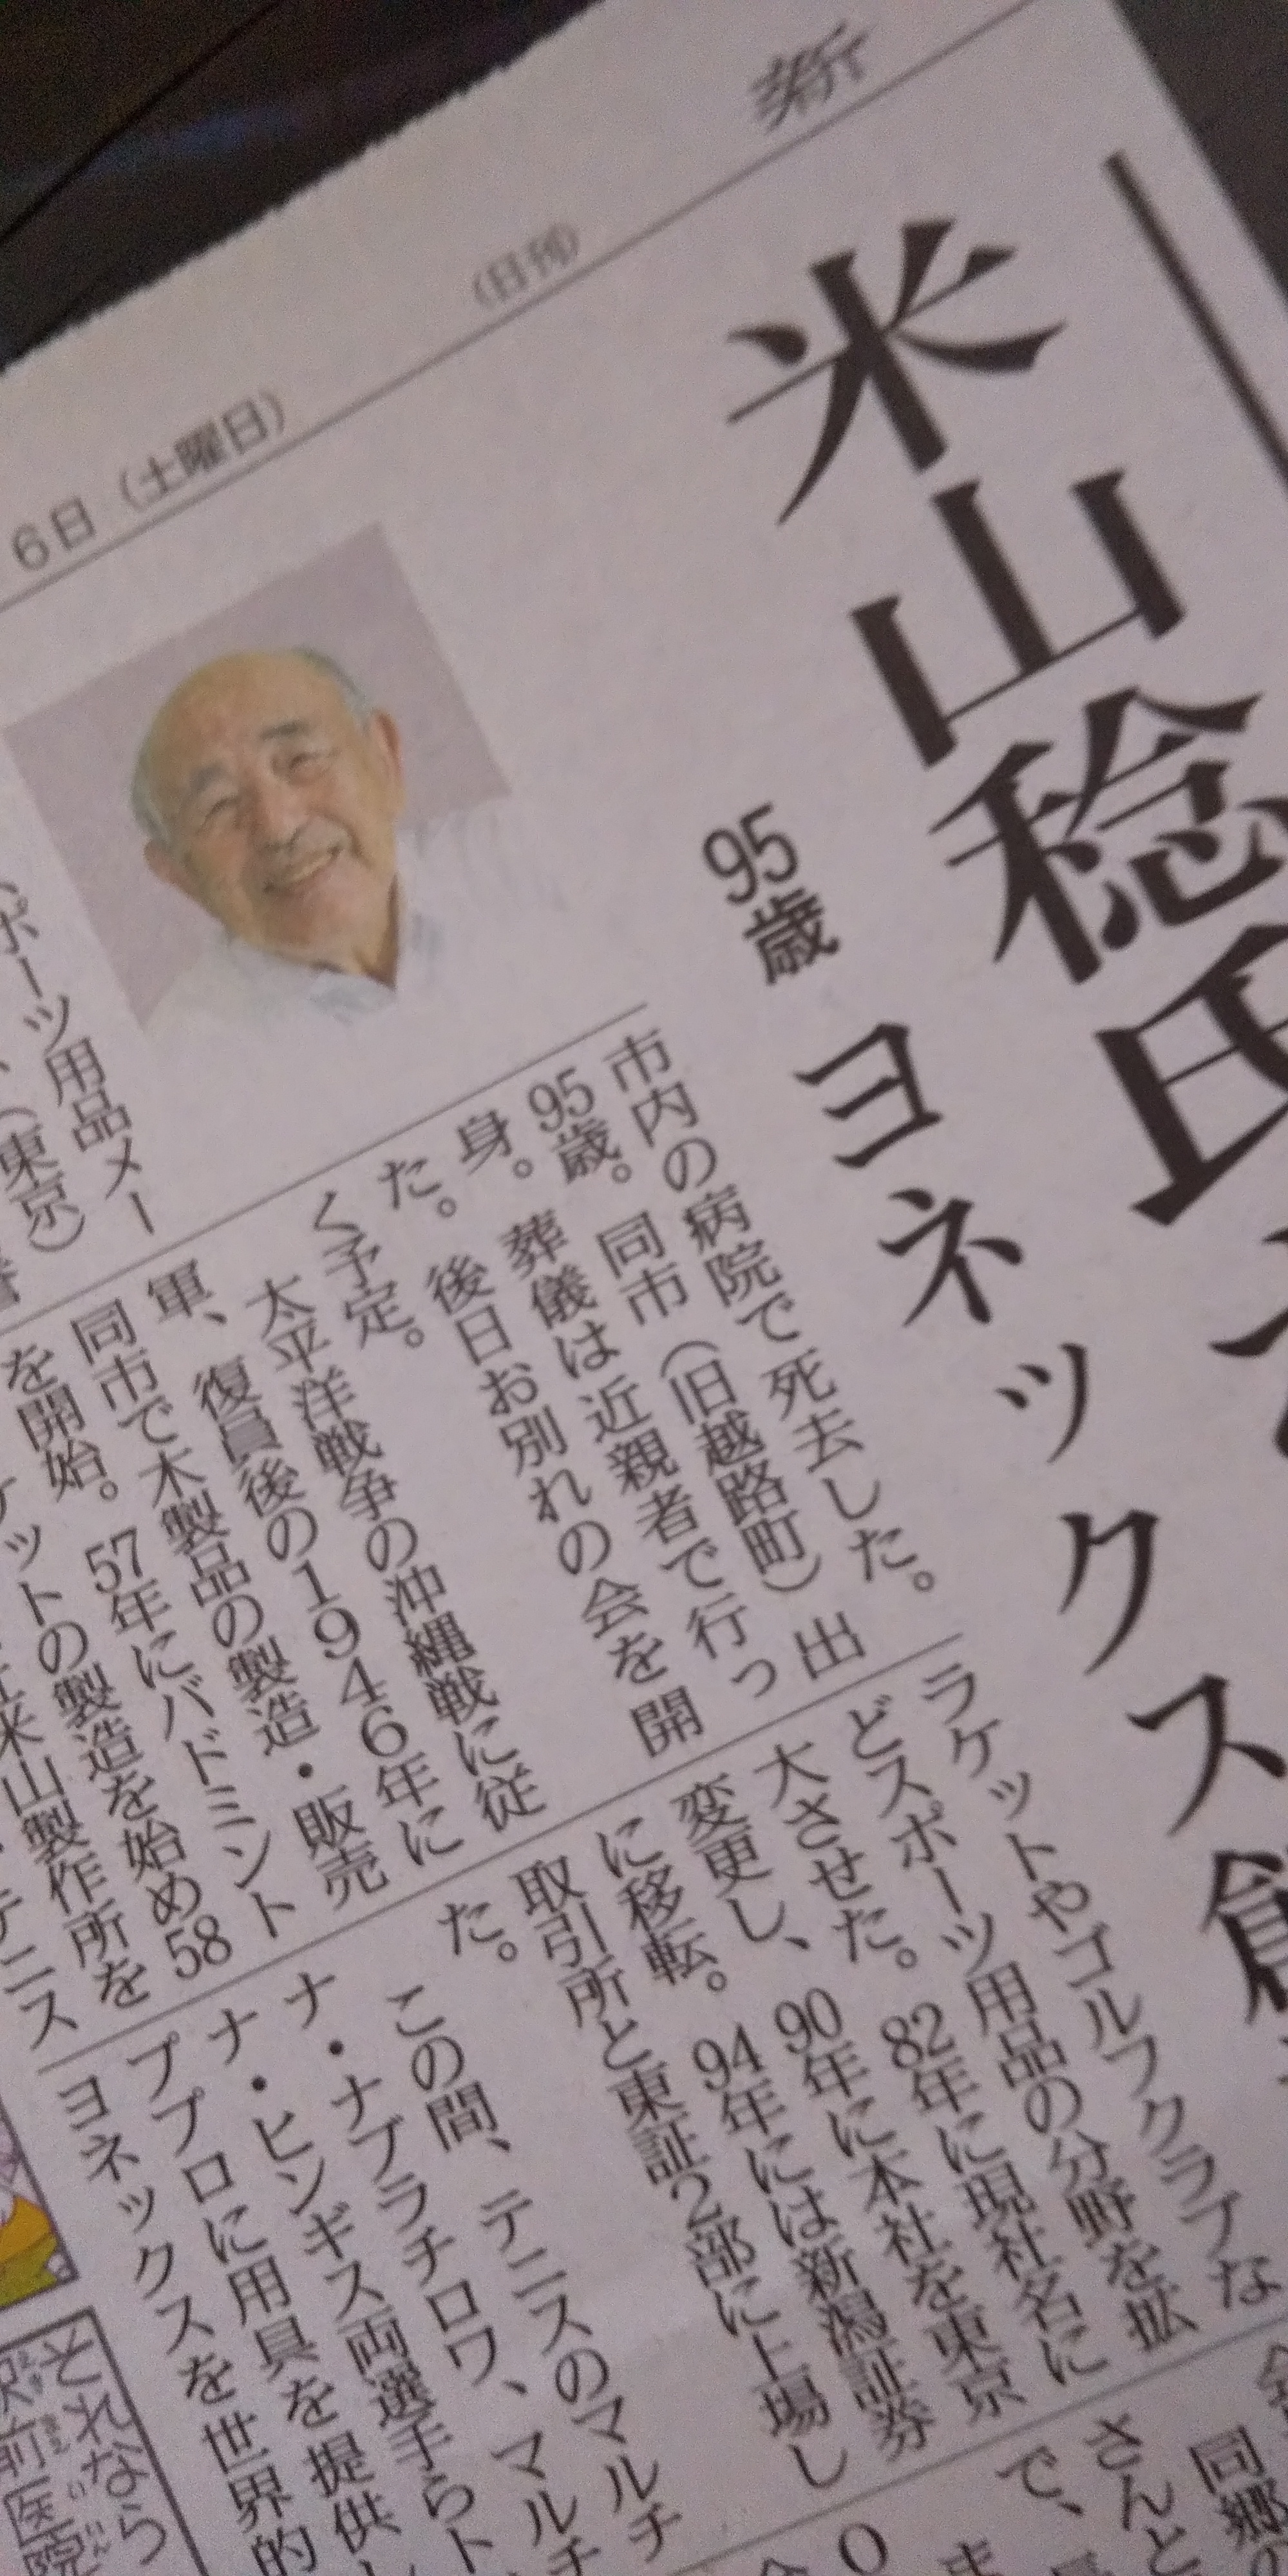 新
(日刊)
6日(土曜日)
米山稔氏
95歳
ヨネックス創
ポーツ用品メー
(東京)
市内の病院で死去した。
95歳。同市(旧越路町)出
身。葬儀は近親者で行っ
た。後日お別れの会を開
く予定。
太平洋戦争の沖縄戦に従
軍、復員後の1946年に
同市で木製品の製造・販売
を開始。57年にバドミント
ケットの製造を始め58
米山製作所を
テニス
ラケットやゴルフクラブな
どスポーツ用品の分野を拡
大させた。82年に現社名に
変更し、90年に本社を東京
に移転。94年には新潟証券
取引所と東証2部に上場し
た。
この間、テニスのマルチ
ナ・ナブラチロワ、マルチ
ナ・ヒンギス両選手らト
ッププロに用具を提供し
ヨネックスを世界的
同郷の
さんと
で、
それなら
前医院